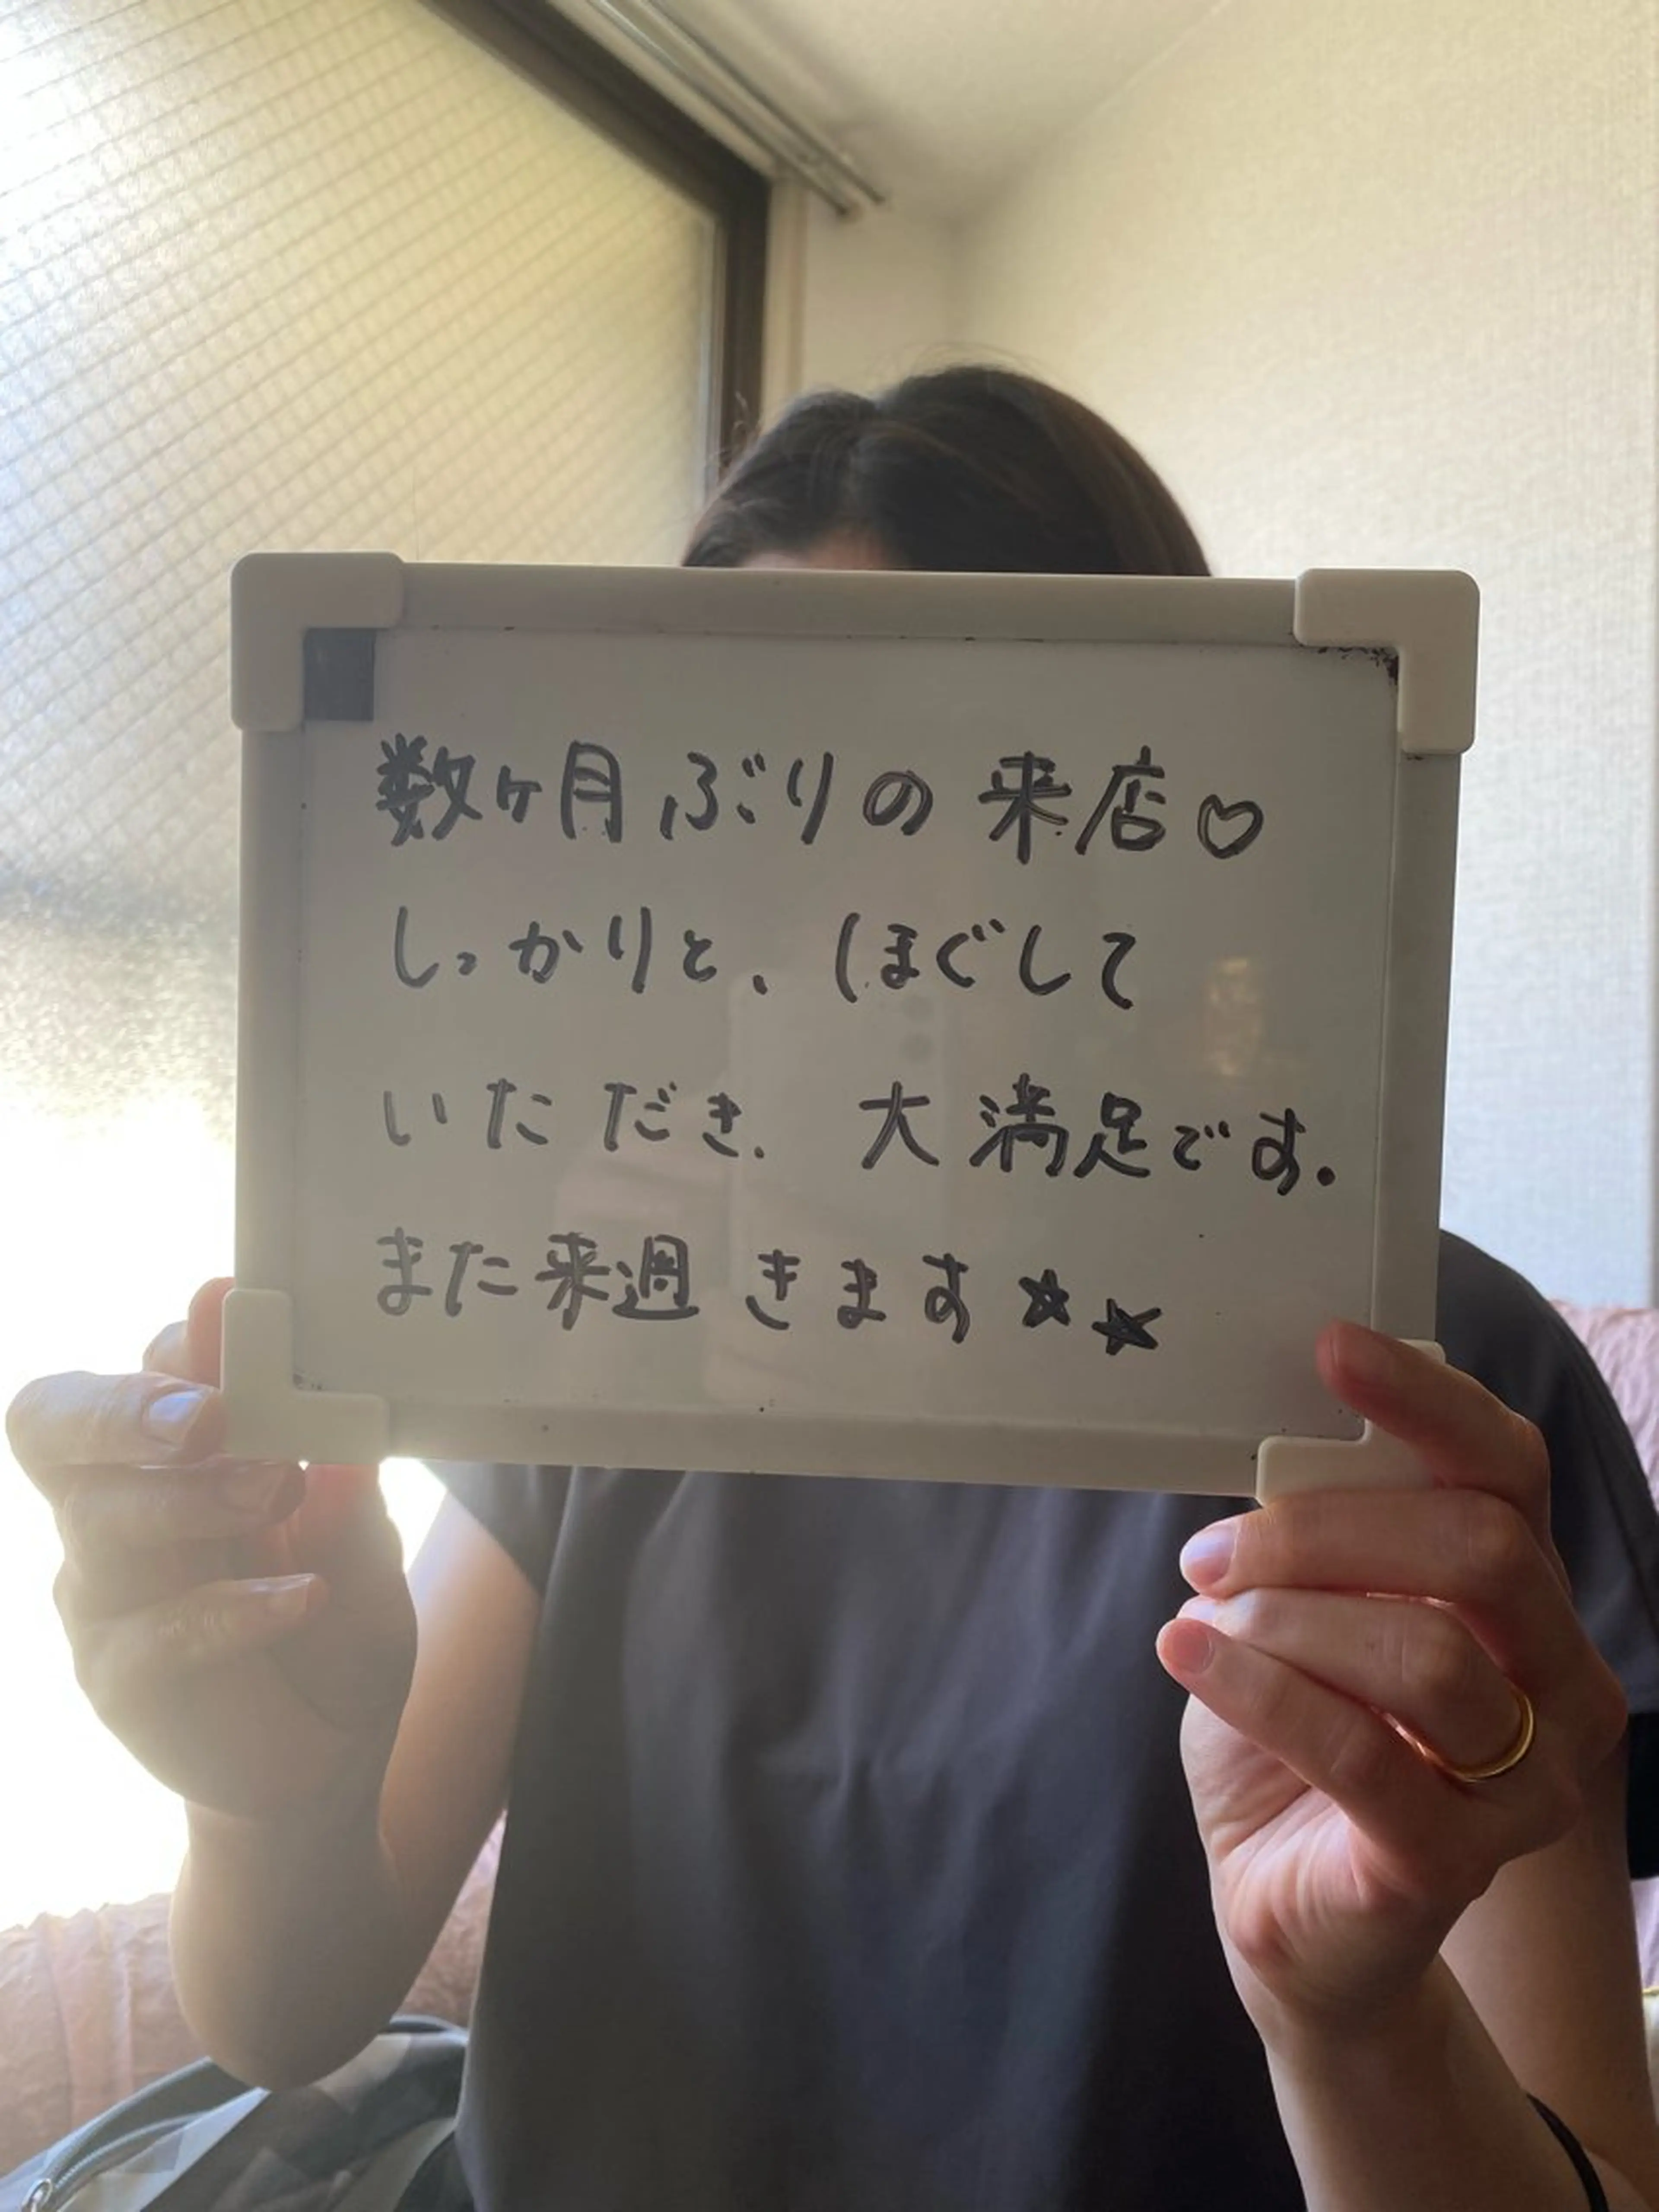 数ヶ月ぶりの来店♡
しっかりと、ほぐして
いただき、大満足です。
また来週きます★★